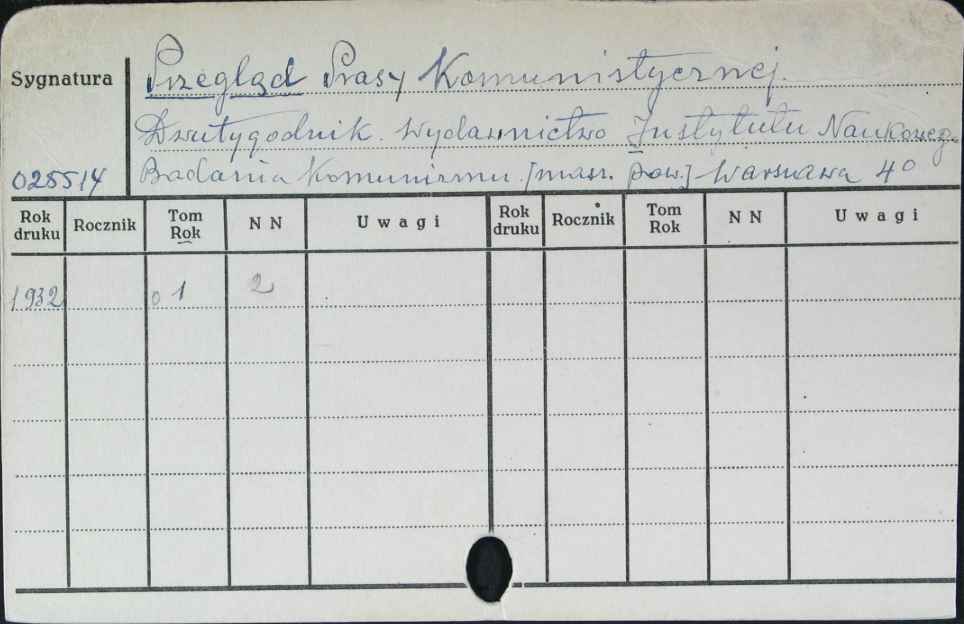 Sygnatura
Przegląd Prasy Komunistycznej.
Dwutygodnik. Wydawnictwo Instytutu Naukoweg.
025514 Badania Komunizmu. [masz. pow.] Warszawa 4°
Rok druku Rocznik Tom Rok N N Uwagi Rok druku Rocznik Tom Rok N N Uwagi
1932 0 1 2